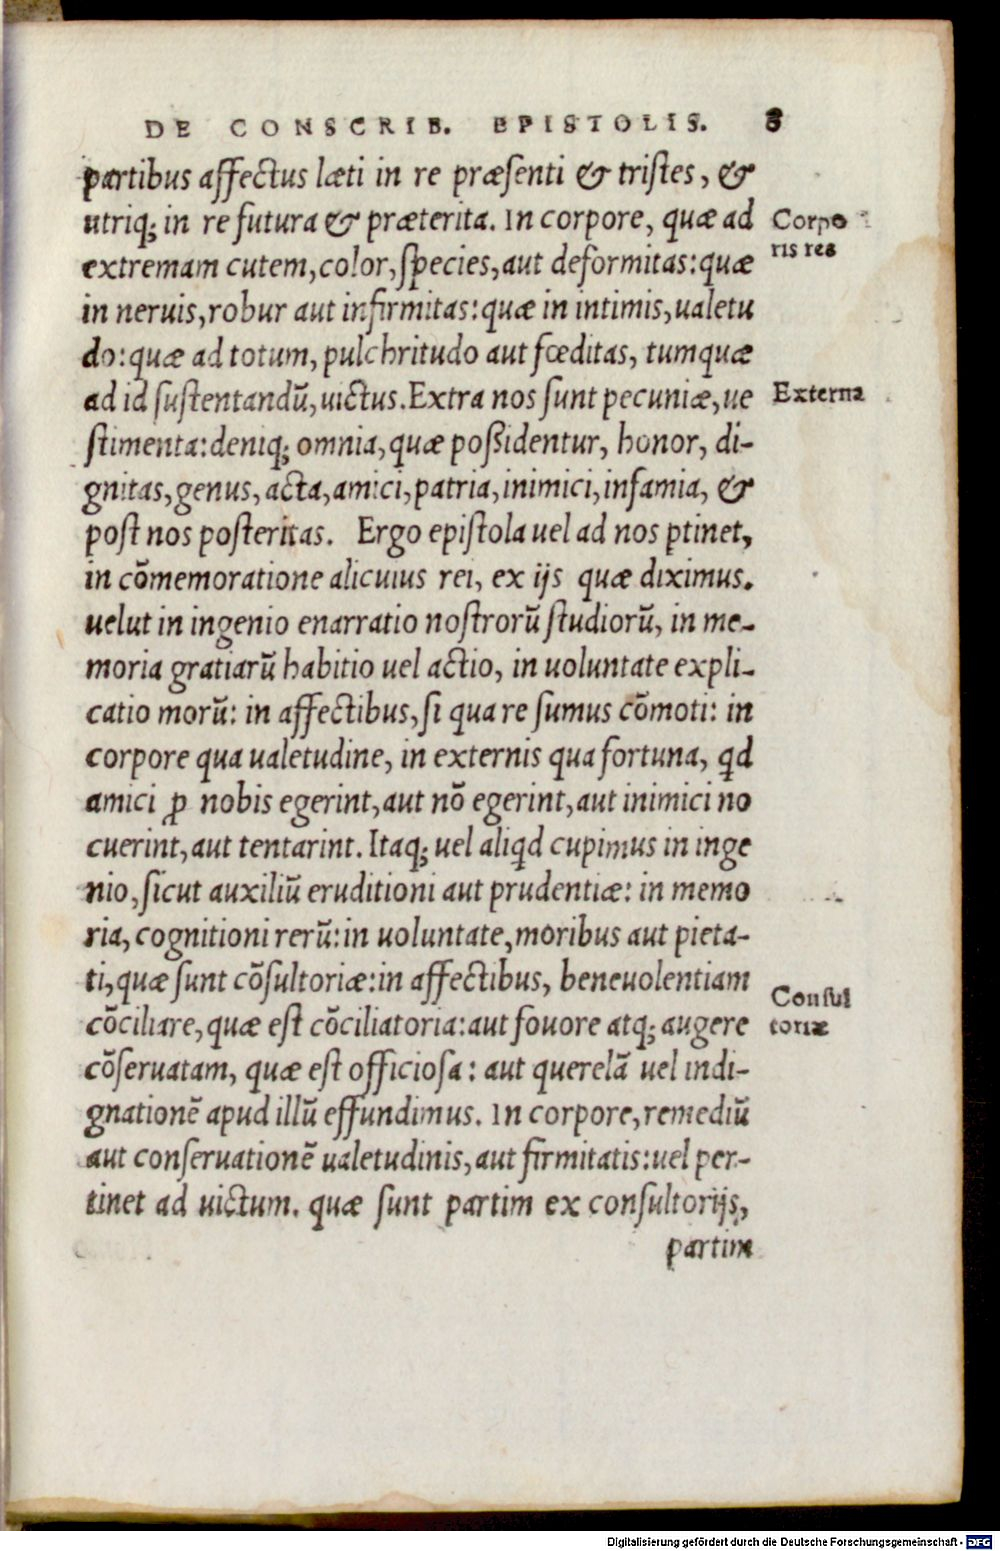 DE CONSCRIB. EPISTOLIS. 8
partibus affectus læti in re præsenti & tristes, &
utriq; in re futura & præterita. In corpore, quæ ad
Corpo
extremam cutem, color, species, aut deformitas: quæ
ris res
in neruis, robur aut infirmitas: quæ in intimis, ualetu
do: quæ ad totum, pulchritudo aut fœditas, tumquæ
ad id sustentandũ, uictus. Extra nos sunt pecuniæ, ue
Externa
stimenta: deniq; omnia, quæ poßidentur, honor, di-
gnitas, genus, acta, amici, patria, inimici, infamia, &
post nos posteritas. Ergo epistola uel ad nos ꝑtinet,
in cõmemoratione alicuius rei, ex ijs quæ diximus.
uelut in ingenio enarratio nostrorũ studiorũ, in me-
moria gratiarũ habitio uel actio, in uoluntate expli-
catio morũ: in affectibus, si qua re sumus cõmoti: in
corpore qua ualetudine, in externis qua fortuna, qd
amici ꝓ nobis egerint, aut nõ egerint, aut inimici no
cuerint, aut tentarint. Itaq; uel aliqd cupimus in inge
nio, sicut auxiliũ eruditioni aut prudentiæ: in memo
ria, cognitioni rerũ: in uoluntate, moribus aut pieta-
ti, quæ sunt cõsultoriæ: in affectibus, beneuolentiam
Consul
cõciliare, quæ est cõciliatoria: aut fouore atq; augere
toriæ
cõseruatam, quæ est officiosa: aut querelã uel indi-
gnationẽ apud illũ effundimus. In corpore, remediũ
aut conseruationẽ ualetudinis, aut firmitatis: uel per-
tinet ad uictum. quæ sunt partim ex consultorijs,
partim
Digitalisierung gefördert durch die Deutsche Forschungsgemeinschaft - DFG